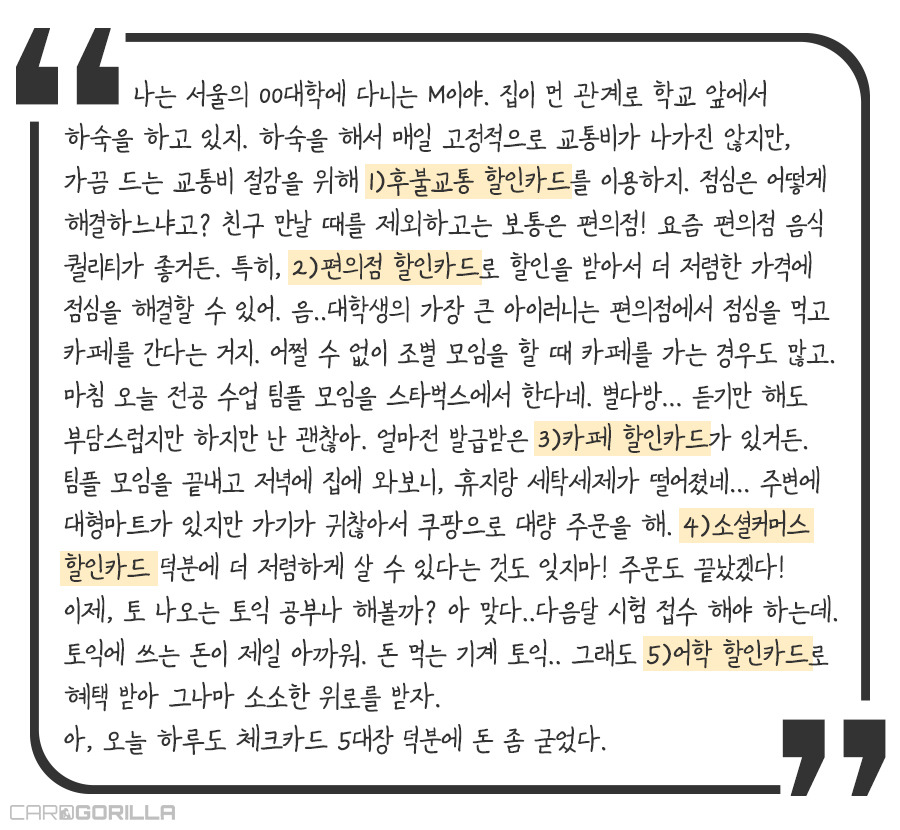 나는 서울의 00대학에 다니는 M이야. 집이 먼 관계로 학교 앞에서
하숙을 하고 있지. 하숙을 해서 매일 고정적으로 교통비가 나가진 않지만,
가끔 드는 교통비 절감을 위해 1)후불교통 할인카드를 이용하지. 점심은 어떻게
해결하느냐고? 친구 만날 때를 제외하고는 보통은 편의점! 요즘 편의점 음식
퀄리티가 좋거든. 특히, 2)편의점 할인카드로 할인을 받아서 더 저렴한 가격에
점심을 해결할 수 있어. 음..대학생의 가장 큰 아이러니는 편의점에서 점심을 먹고
카페를 간다는 거지. 어쩔 수 없이 조별 모임을 할 때 카페를 가는 경우도 많고.
마침 오늘 전공 수업 팀플 모임을 스타벅스에서 한다네. 별다방... 듣기만 해도
부담스럽지만 하지만 난 괜찮아. 얼마전 발급받은 3)카페 할인카드가 있거든.
팀플 모임을 끝내고 저녁에 집에 와보니, 휴지랑 세탁세제가 떨어졌네... 주변에
대형마트가 있지만 가기가 귀찮아서 쿠팡으로 대량 주문을 해. 4)소셜커머스
할인카드 덕분에 더 저렴하게 살 수 있다는 것도 잊지마! 주문도 끝났겠다!
이제, 토 나오는 토익 공부나 해볼까? 아 맞다..다음달 시험 접수 해야 하는데.
토익에 쓰는 돈이 제일 아까워. 돈 먹는 기계 토익.. 그래도 5)어학 할인카드로
혜택 받아 그나마 소소한 위로를 받자.
아, 오늘 하루도 체크카드 5대장 덕분에 돈 좀 굳었다.
CARD GORILLA